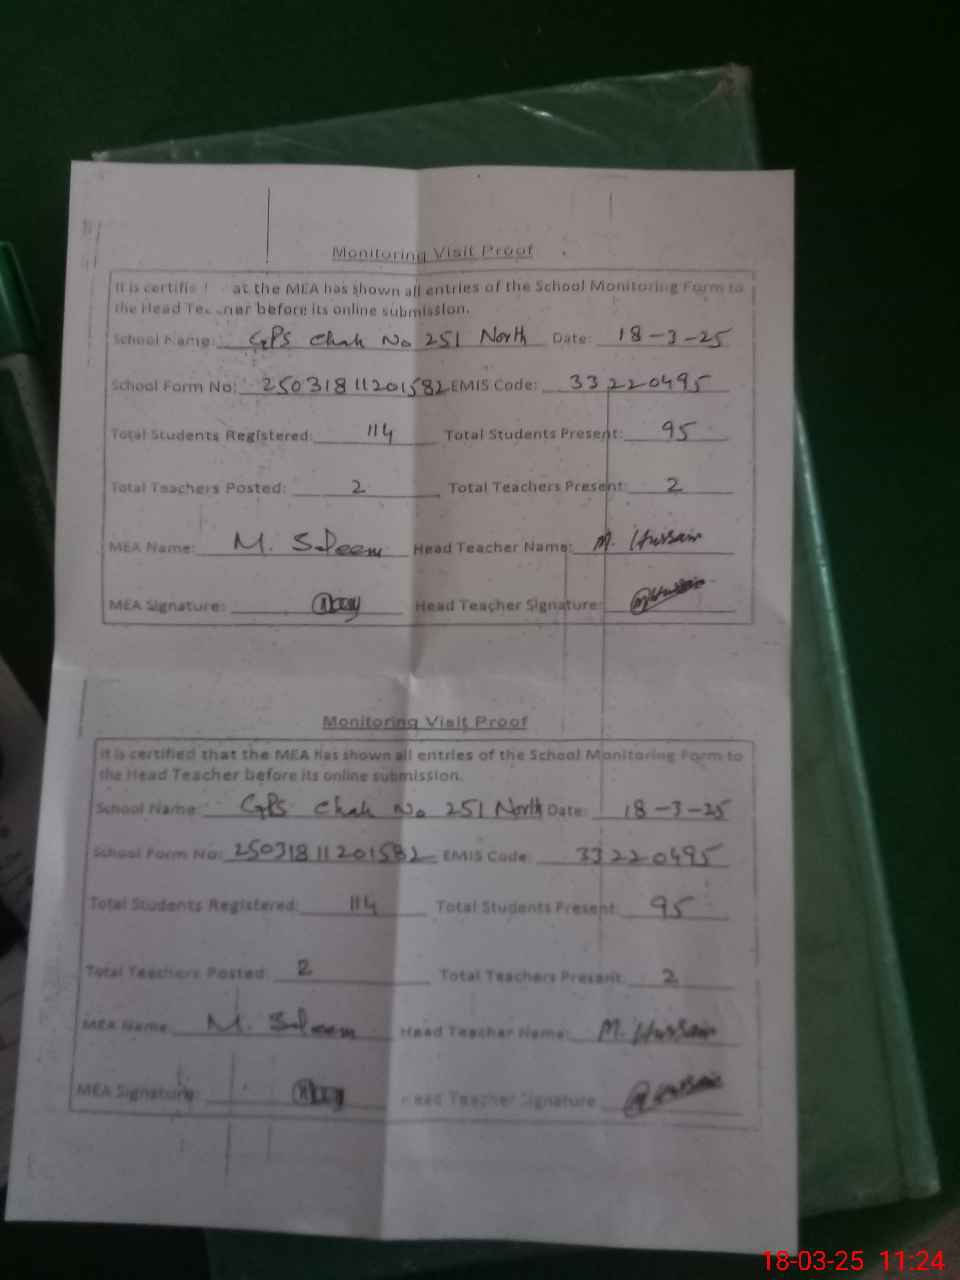 Monitoring Visit Proof
It is certifie at the MEA has shown all entries of the School Monitoring Form to
the Head Teacher before its online submission.
School Name: GPS Chak No 251 North Date: 18-3-25
School Form No: 25031811201582 EMIS Code: 33220495
Total Students Registered: 114 Total Students Present: 95
Total Teachers Posted: 2 Total Teachers Present: 2
MEA Name: M. Saleem Head Teacher Name: M. Hussain
MEA Signature: Head Teacher Signature:
Monitoring Visit Proof
It is certified that the MEA has shown all entries of the School Monitoring Form to
the Head Teacher before its online submission.
School Name: GPS Chak No 251 North Date: 18-3-25
School Form No: 25031811201582 EMIS Code: 33220495
Total Students Registered: 114 Total Students Present: 95
Total Teachers Posted: 2 Total Teachers Present: 2
MEA Name: M. Saleem Head Teacher Name: M. Hussain
MEA Signature: Head Teacher Signature
18-03-25 11:24